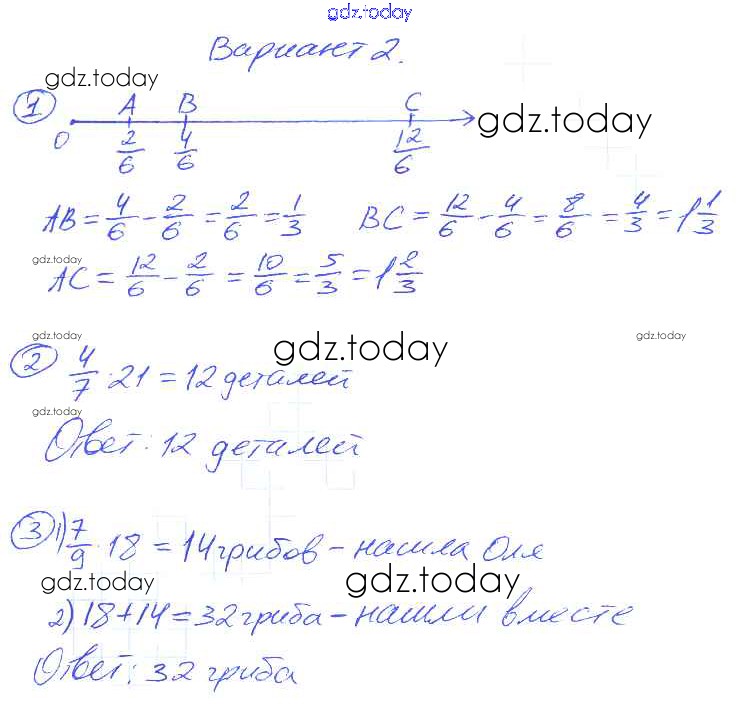 gdz.today
Вариант 2.
gdz.today
1 A B C
gdz.today
0 2/6 4/6 12/6
AB = 4/6 - 2/6 = 2/6 = 1/3 BC = 12/6 - 4/6 = 8/6 = 4/3 = 1 1/3
gdz.today
AC = 12/6 - 2/6 = 10/6 = 5/3 = 1 2/3
gdz.today gdz.today gdz.today
2 4/7 · 21 = 12 деталей
gdz.today
Ответ: 12 деталей
3 1) 7/9 · 18 = 14 грибов - нашла Оля
gdz.today gdz.today
2) 18+14 = 32 гриба - нашли вместе
Ответ: 32 гриба